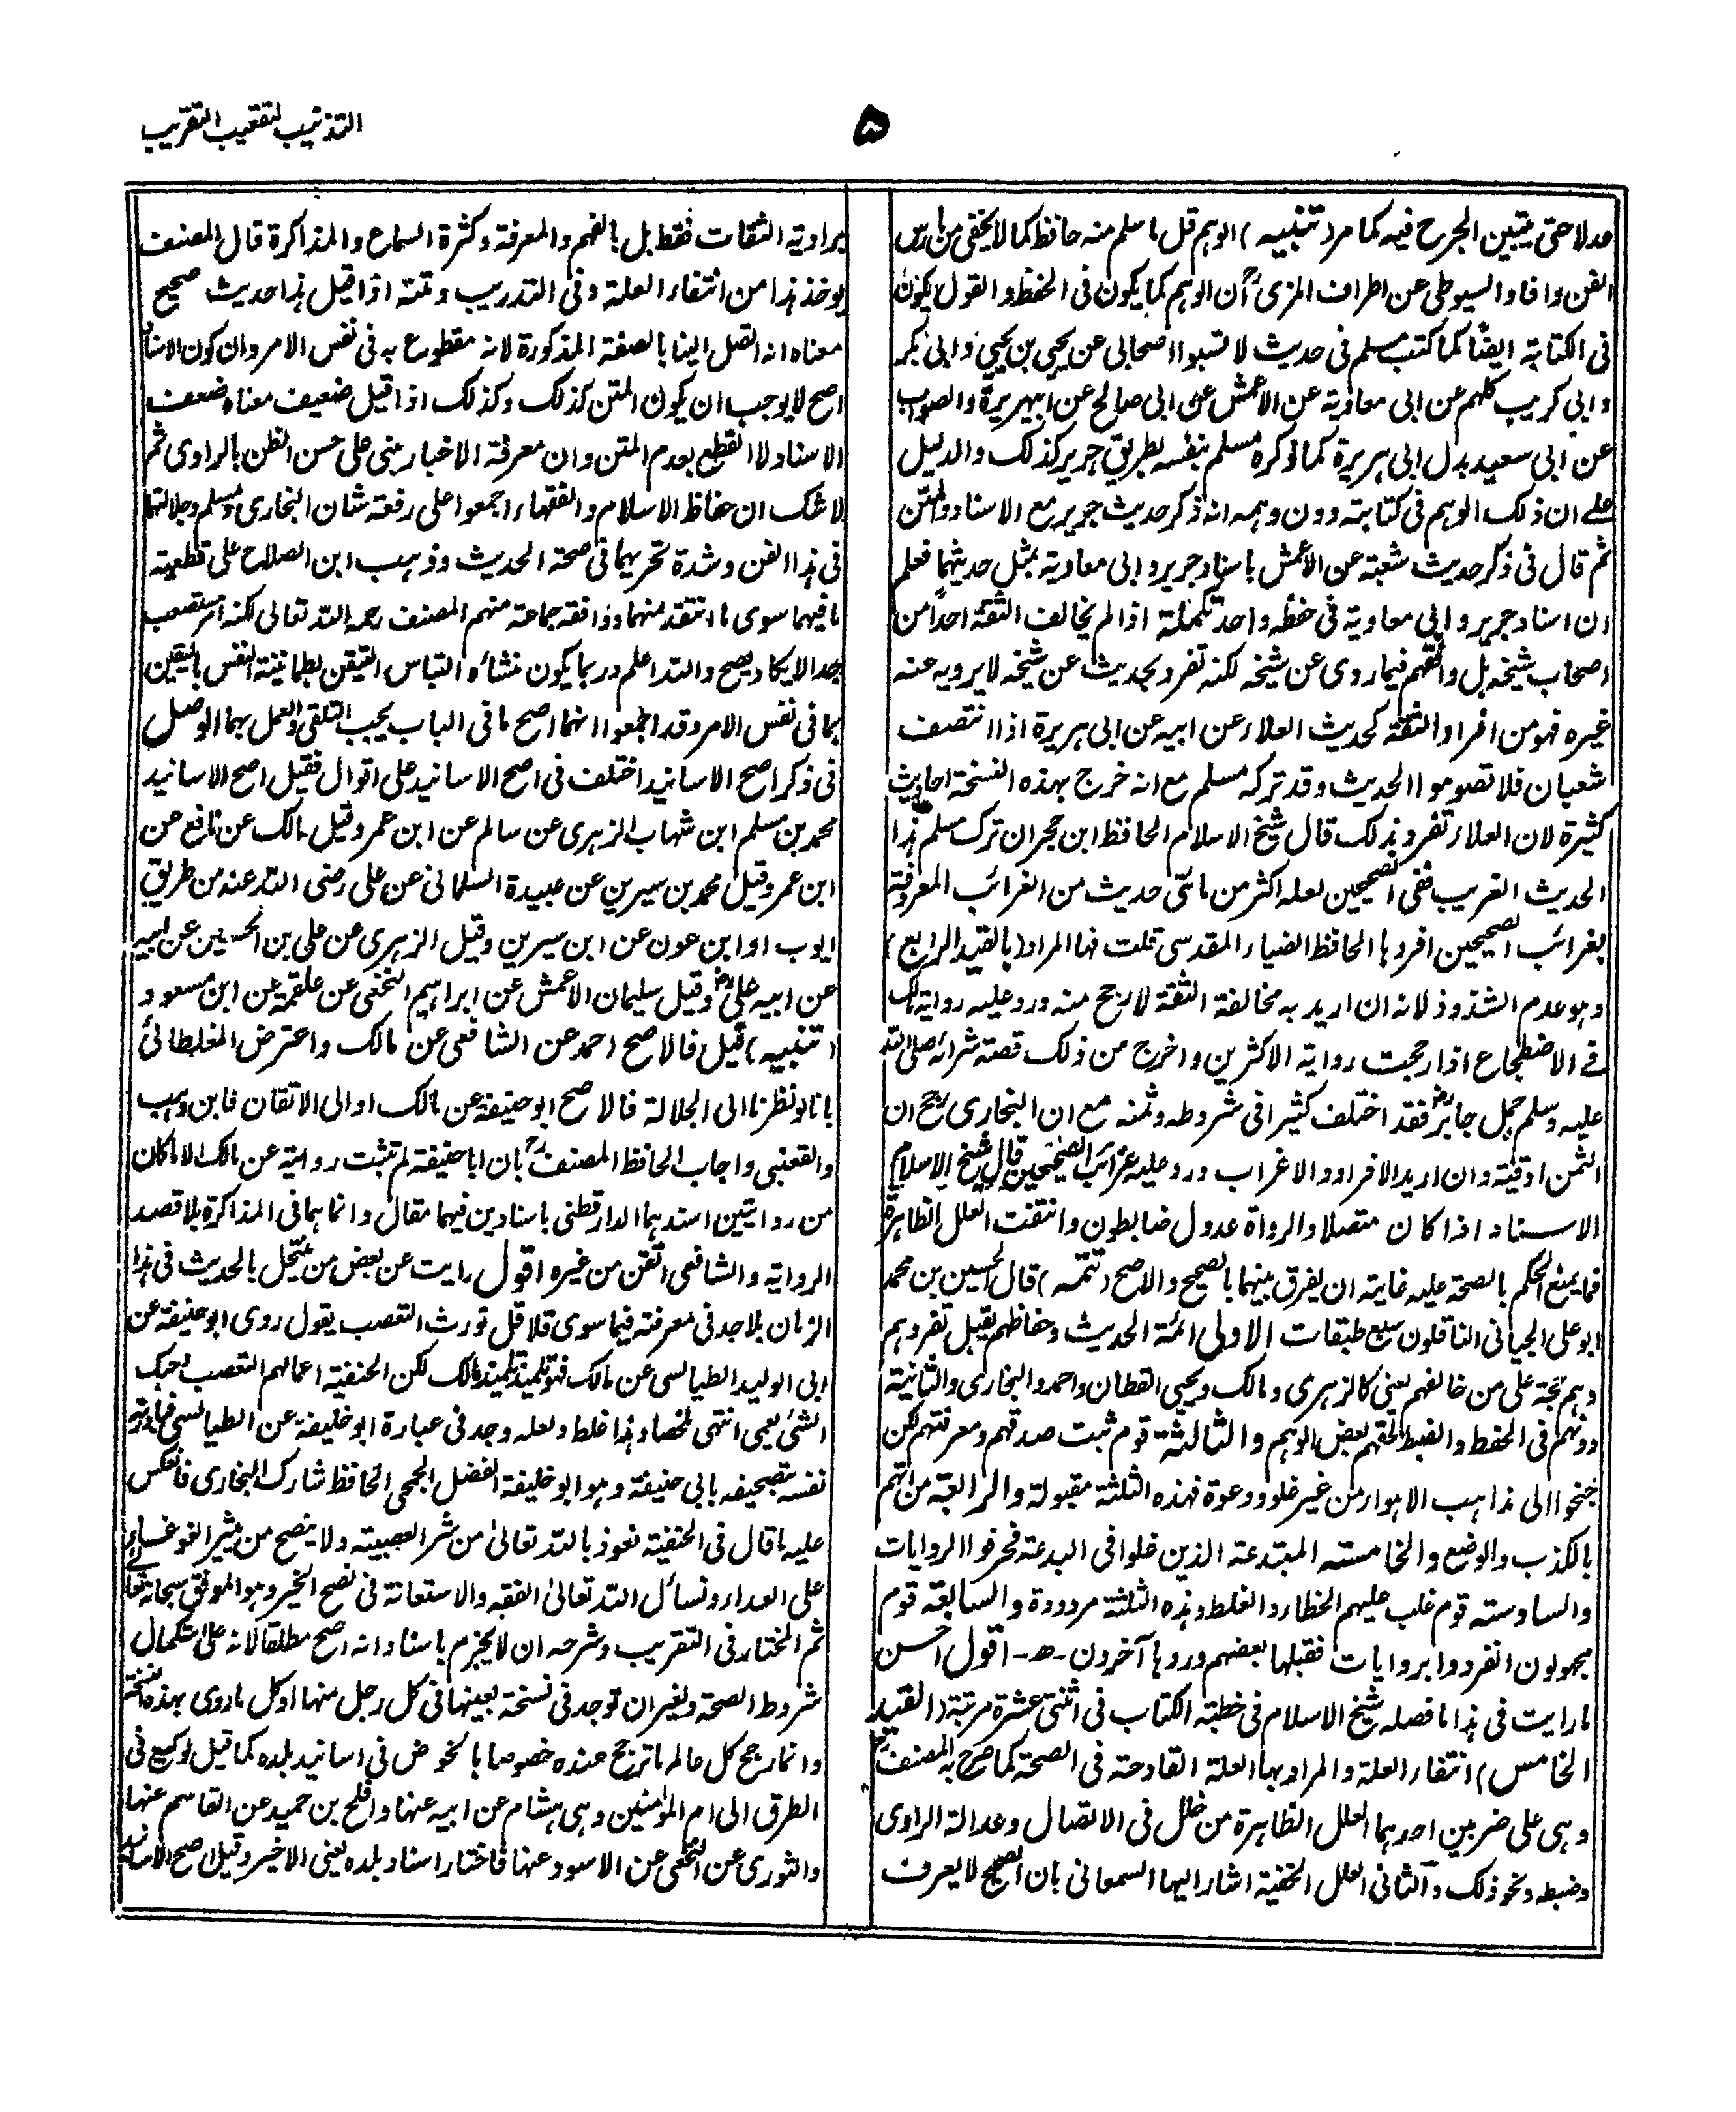 التذنيب لتعقيب التقريب
۵
عدلا حتى يتبين الجرح فيه كما مر (تنبيه) الوهم قل ما سلم منه حافظ كما لا يخفى من مارس
الفن وافاد السيوطى عن اطراف المزى ان الوهم كما يكون فى الحفظ والقول يكون
فى الكتابة ايضا كما كتب مسلم فى حديث لا تسبوا اصحابى عن يحيى بن يحيى وابى بكر
وابى كريب كلهم عن ابى معاوية عن الاعمش عن ابى صالح عن ابى هريرة والصواب
عن ابى سعيد بدل ابى هريرة كما ذكره مسلم بنفسه بطريق جرير كذلك والدليل
على ان ذلك الوهم فى كتابته دون وهمه انه ذكر حديث جرير مع الاسناد والمتن
ثم قال فى ذكر حديث شعبة عن الاعمش باسناد جرير وابى معاوية بمثل حديثهما فعلم
ان اسناد جرير وابى معاوية فى حفظه واحد تكملة اذا لم يخالف الثقة احدا من
اصحاب شيخه بل وافقهم فيما روى عن شيخه لكنه تفرد بحديث عن شيخه لا يرويه عنه
غيره فهو من افراد الثقة كحديث العلاء عن ابيه عن ابى هريرة اذا انتصف
شعبان فلا تصوموا الحديث وقد تركه مسلم مع انه خرج بهذه النسخة احاديث
كثيرة لان العلاء تفرد بذلك قال شيخ الاسلام الحافظ ابن حجر ان ترك مسلم هذا
الحديث الغريب ففى الصحيحين لعله اكثر من مائتى حديث من الغرائب المعروفة
بغرائب الصحيحين افردها الحافظ الضياء المقدسى قلت فما المراد (بالقيد الرابع)
وهو عدم الشذوذ لانه ان اريد به مخالفة الثقة لارجح منه ورد عليه رواية مالك
فى الاضطجاع اذا رجحت رواية الاكثرين واخرج من ذلك قصة شرائه صلى الله
عليه وسلم جمل جابر رض فقد اختلف كثيرا فى شروطه وثمنه مع ان البخارى رجح ان
الثمن اوقية وان اريد الافراد والاغراب ورد عليه غرائب الصحيحين قال شيخ الاسلام
الاسناد اذا كان متصلا والرواة عدول ضابطون وانتفت العلل الظاهرة
فما يمنع الحكم بالصحة عليه غايته ان يفرق بينهما بالصحيح والاصح (تتمة) قال الحسين بن محمد
ابو على الجيانى الناقلون سبع طبقات الاولى ائمة الحديث وحفاظهم يقبل تفردهم
وهم حجة على من خالفهم يعنى كالزهرى ومالك ويحيى القطان واحمد والبخارى والثانية
دونهم فى الحفظ والضبط لحقهم بعض الوهم والثالثة قوم ثبت صدقهم ومعرفتهم لكن
جنحوا الى مذاهب الاهواء من غير غلو ودعوة فهذه الثلثة مقبولة والرابعة من اتهم
بالكذب والوضع والخامسة المبتدعة الذين غلوا فى البدعة فحرفوا الروايات
والسادسة قوم غلب عليهم الخطاء والغلط وهذه الثلثة مردودة والسابعة قوم
مجهولون انفردوا بروايات فقبلها بعضهم وردها آخرون -ھ- اقول احسن
ما رايت فى هذا ما فصله شيخ الاسلام فى خطبة الكتاب فى اثنتى عشرة مرتبة (القيد
الخامس) انتفاء العلة والمراد بها العلة القادحة فى الصحة كما صرح به المصنف رح
وهى على ضربين احدهما العلل الظاهرة من خلل فى الاتصال وعدالة الراوى
وضبطه ونحو ذلك والثانى العلل الخفية اشار اليها السمعانى بان الصحيح لا يعرف
برواية الثقات فقط بل بالفهم والمعرفة وكثرة السماع والمذاكرة قال المصنف
يوخذ هذا من انتفاء العلة وفى التدريب وتمته اذا قيل هذا حديث صحيح
معناه انه اتصل الينا بالصفة المذكورة لانه مقطوع به فى نفس الامر وان كون الاسناد
اصح لا يوجب ان يكون المتن كذلك وكذلك اذا قيل ضعيف معناه ضعف
الاسناد لا القطع بعدم المتن وان معرفة الاخبار بنى على حسن الظن بالراوى ثم
لا شك ان حفاظ الاسلام والفقهاء اجمعوا على رفعة شان البخارى ومسلم وجلالتهما
فى هذا الفن وشدة تحريهما فى صحة الحديث وذهب ابن الصلاح على قطعية
ما فيهما سوى ما انتقد منهما ووافقه جماعة منهم المصنف رحمه الله تعالى لكنه امر مستصعب
جدا لا يكاد يصح والله اعلم وربما يكون منشاه التباس التيقن بطمانينة النفس باليقين
بما فى نفس الامر وقد اجمعوا انهما اصح ما فى الباب يجب التلقى والعمل بهما الوصل
فى ذكر اصح الاسانيد اختلف فى اصح الاسانيد على اقوال فقيل اصح الاسانيد
محمد بن مسلم ابن شهاب الزهرى عن سالم عن ابن عمر وقيل مالك عن نافع عن
ابن عمر وقيل محمد بن سيرين عن عبيدة السلمانى عن على رضى الله عنه من طريق
ايوب او ابن عون عن ابن سيرين وقيل الزهرى عن على بن الحسين عن ابيه
عن ابيه على رض وقيل سليمان الاعمش عن ابراهيم النخعى عن علقمة عن ابن مسعود
(تنبيه) قيل فالاصح احمد عن الشافعى عن مالك واعترض المغلطائى
بانا لو نظرنا الى الجلالة فالاصح ابو حنيفة عن مالك او الى الاتقان فابن وهب
والقعنبى واجاب الحافظ المصنف رح بان ابا حنيفة لم تثبت روايته عن مالك الا ما كان
من روايتين اسندهما الدارقطنى باسنادين فيهما مقال وانما هما فى المذاكرة بلا قصد
الرواية والشافعى اتقن من غيره اقول رايت عن بعض من ينتحل بالحديث فى هذا
الزمان بلا جد فى معرفته فيما سوى قلا قل تورث التعصب يقول روى ابو حنيفة عن
ابى الوليد الطيالسى عن مالك فهو تلميذ تلميذ مالك لكن الحنفية اعمالهم التعصب وحبك
الشئ يعمى انتهى ملخصا وهذا غلط ولعله وجد فى عبارة ابو خليفة عن الطيالسى
نفسه بتصحيفه بابى حنيفة وهو ابو خليفة الفضل الجمحى الحافظ شارك البخارى فانعكس
عليه ما قال فى الحنفية نعوذ بالله تعالى من شر العصبية ولا ينصح من يثير الغوغاء
على العداء ونسائل الله تعالى الفقه والاستعانة فى نصح الخير وهو الموفق سبحانه تعالى
ثم المختار فى التقريب وشرحه ان لا يجزم باسناد انه اصح مطلقا لانه على استكمال
شروط الصحة ولغير ان توجد فى نسخة بعينها فى كل رجل منها او كل ما روى بهذه النسخة
وانما رجح كل عالم ما ترجح عنده خصوصا بالخوض فى اسانيد بلده كما قيل لوكيع فى
الطرق الى ام المؤمنين وهى هشام عن ابيه عنها وافلح بن حميد عن القاسم عنها
والثورى عن النخعى عن الاسود عنها فاختار اسناد بلده يعنى الاخير وقيل اصح الاسانيد